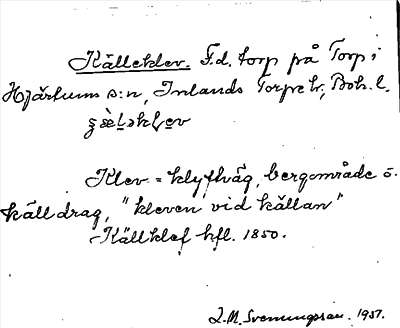 Källeklev. F.d. torp på Torp i
Hjärtums s:n, Inlands Torpe hr, Boh. l.
Klev = klyftväg, bergområde o.
källdrag, "kleven vid källan"
Källklef hfl. 1850.
L.M. Svenungsson. 1957.